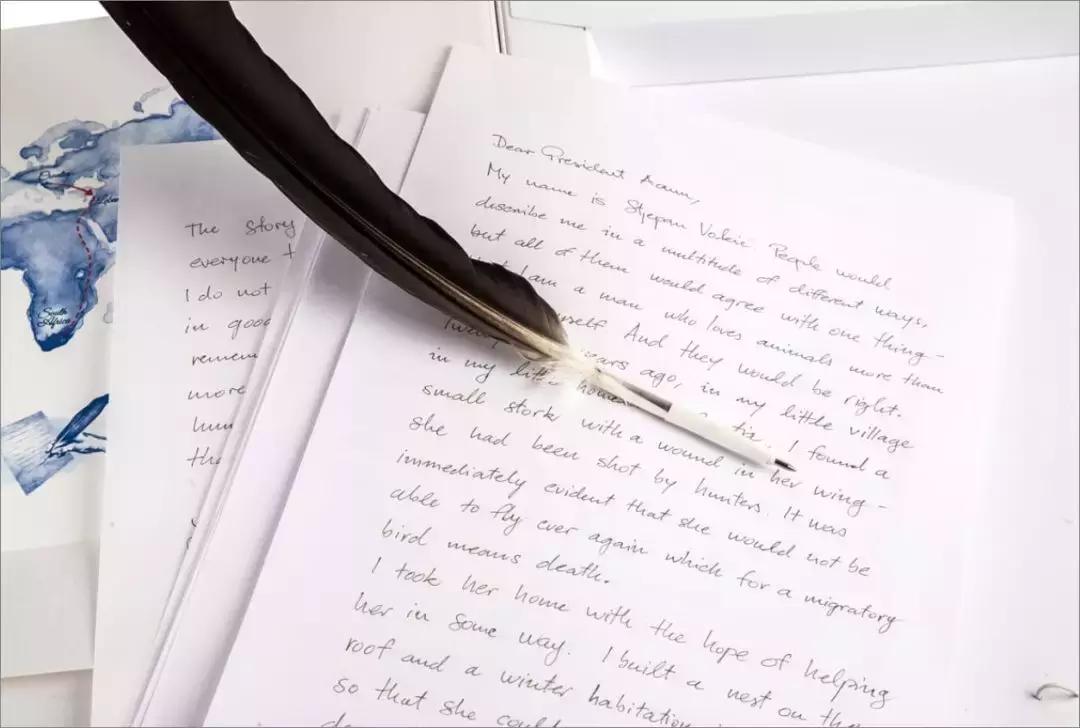 South
Africa
The story
everyone t
I do not
in good
remem
more
hun
the
Dear President Aoun,
My name is Stjepan Vokić. People would
describe me in a multitude of different ways,
but all of them would agree with one thing-
I am a man who loves animals more than
myself. And they would be right.
years ago, in my little village
in my little home I found a
small stork with a wound in her wing-
she had been shot by hunters. It was
immediately evident that she would not be
able to fly ever again which for a migratory
bird means death.
I took her home with the hope of helping
her in some way. I built a nest on the
roof and a winter habitation
so that she could